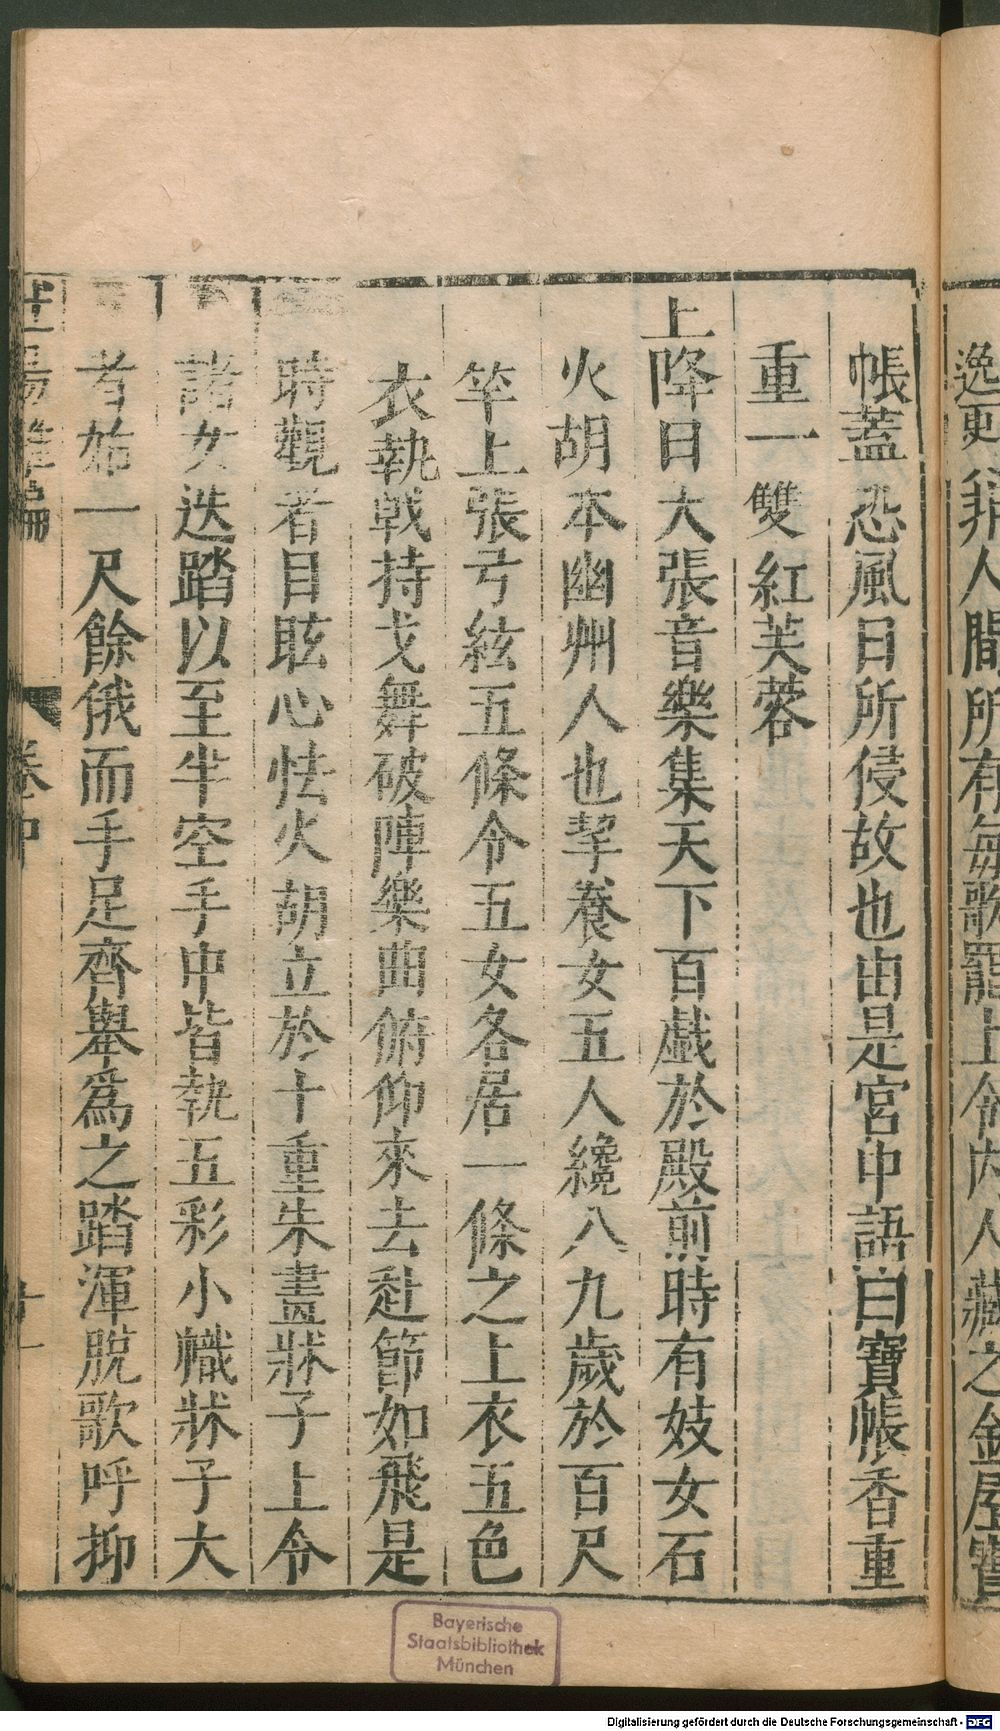 逸更非人間所有每歌罷上令內人藏之金屋寶
帳蓋恐風日所侵故也由是宮中語曰寶帳香重
重一雙紅芙蓉
上降日大張音樂集天下百戲於殿前時有妓女石
火胡本幽州人也挈養女五人纔八九歲於百尺
竿上張弓絃五條令五女各居一條之上衣五色
衣執戟持戈舞破陣樂曲俯仰來去赴節如飛是
時觀者目眩心怯火胡立於十重朱畫牀子上令
諸女迭踏以至半空手中皆執五彩小幟牀子大
者始一尺餘俄而手足齊舉為之踏渾脫歌呼抑
杜陽雜編
卷中
十一
Bayerische
Staatsbibliothek
München
Digitalisierung gefördert durch die Deutsche Forschungsgemeinschaft - DFG